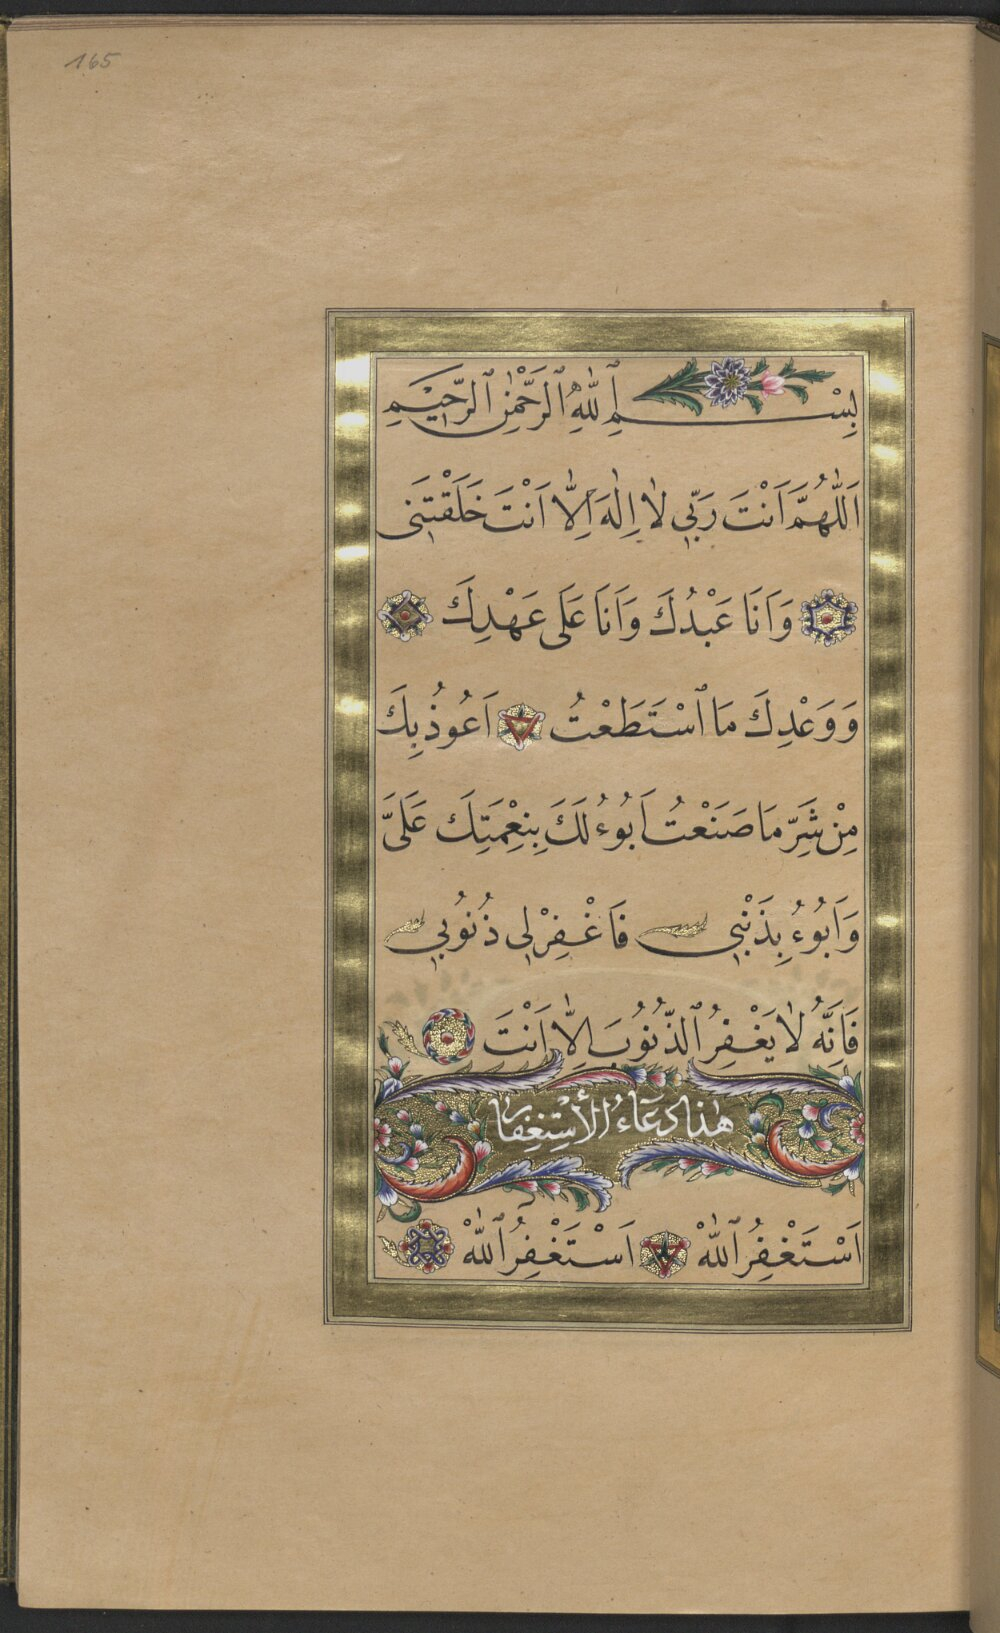 165
بِسْمِ ٱللّٰهِ ٱلرَّحْمٰنِ ٱلرَّحِيْمِ
اَللّٰهُمَّ اَنْتَ رَبِّي لٰا اِلٰهَ اِلّٰا اَنْتَ خَلَقْتَنِى
وَاَنَا عَبْدُكَ وَاَنَا عَلٰى عَهْدِكَ
وَوَعْدِكَ مَا ٱسْتَطَعْتُ اَعُوذُ بِكَ
مِنْ شَرِّ مَا صَنَعْتُ اَبُوءُ لَكَ بِنِعْمَتِكَ عَلَىَّ
وَاَبُوءُ بِذَنْبِي فَاغْفِرْلِى ذُنُوبِي
فَاِنَّهُ لٰا يَغْفِرُ ٱلذُّنُوبَ اِلّٰا اَنْتَ
هٰذا دُعَاءُ الْأَسْتِغِفَارْ
اَسْتَغْفِرُ ٱللّٰهْ اَسْتَغْفِرُ ٱللّٰهْ